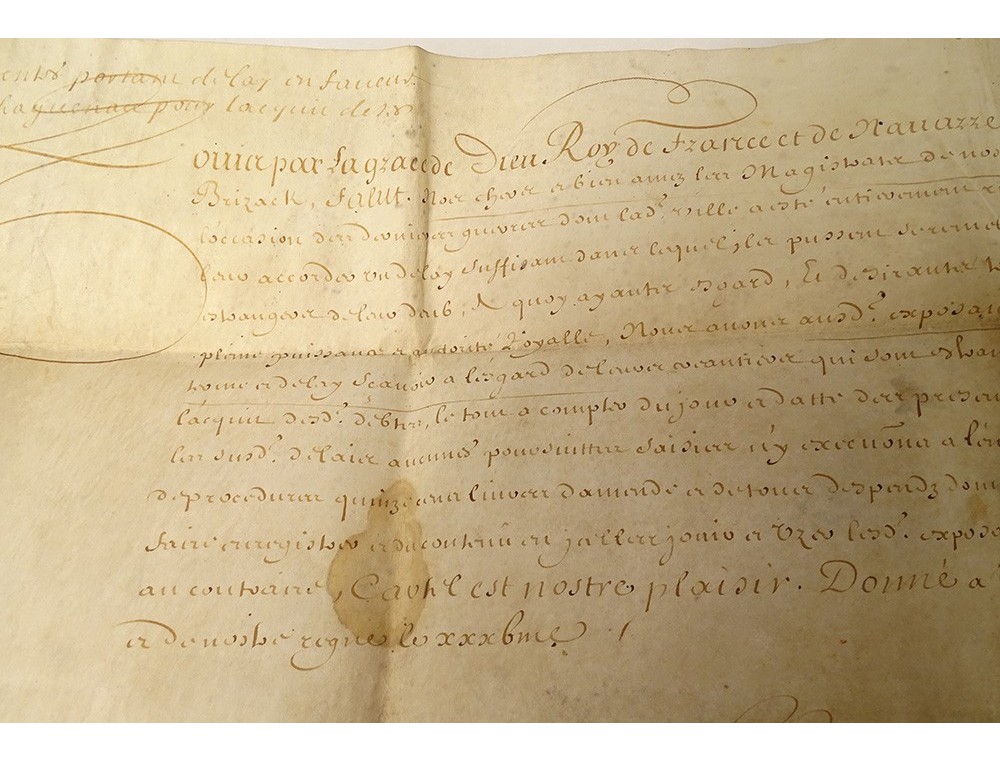 portant delay en faveur
haguenau pour lacquit de
ouis par La grace de Dieu Roy de France et de Navarre
Brizack, Salut. Nos chers et bien amez les Magistrats de nos
l'occasion des dernieres guerres dont lad.^e ville a esté entierement
leur accorder un delay suffisant dans lequel ils pussent se
estrangers de leur deub, A quoy ayants esgard, Et desirants
pleine puissance et autorité Royalle, Nous avons ausd.^s exposa
terme et delay Sçavoir a l'esgard de leurs creantiers qui sont
l'acquit desd.^s debtes, le tout a compter du jour et datte des presen
les susd.^s delais aucunes poursuittes saisies n'y execu~ons a l'en
de procedures quinze cens livres d'amende et de tous despendz dom
faire enregistrer et du contenu en jcelles jouir et Uzer lesd.^s expos
au contraire, Car tel est nostre plaisir. Donné a
et de nostre regne le xxxbme /